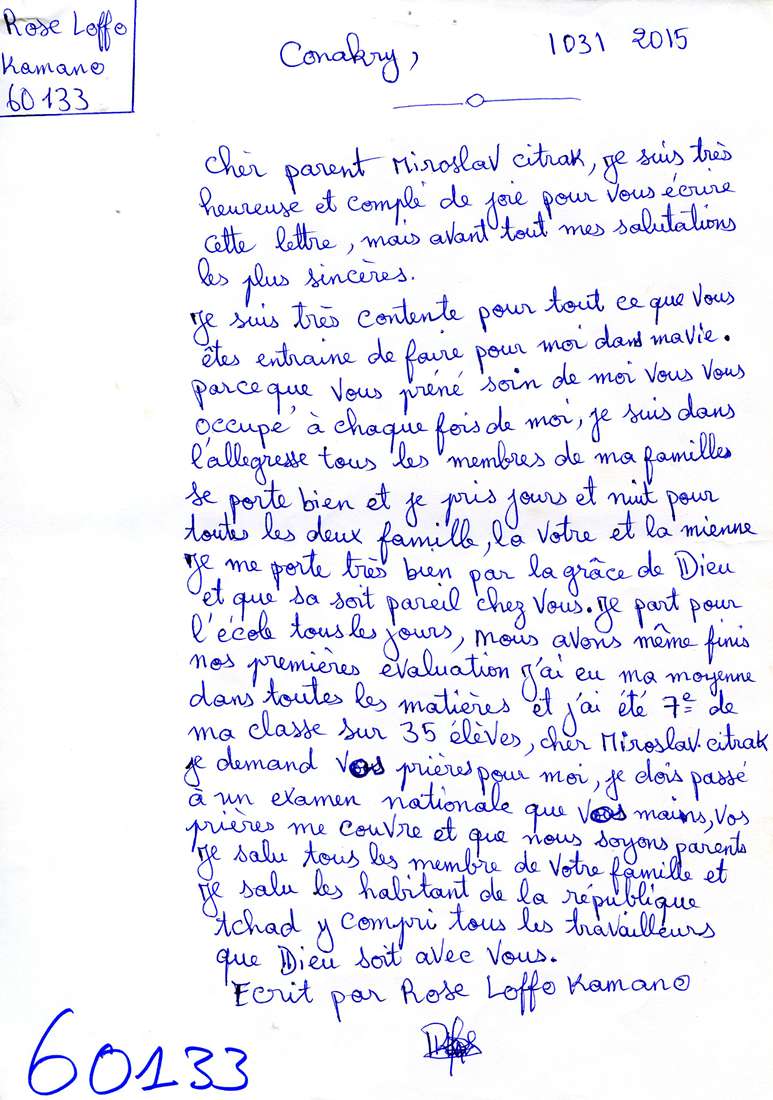 Rose Loffo
Kamano
60133
Conakry, 1031 2015
Chèr parent Miroslav citrak, je suis très
heureuse et complé de joie pour vous écrire
cette lettre, mais avant tout mes salutations
les plus sincères.
Je suis très contente pour tout ce que vous
êtes entraine de faire pour moi dans ma vie.
parceque vous préné soin de moi vous vous
occupé à chaque fois de moi, je suis dans
l'allegresse tous les membres de ma familles
se porte bien et je pris jours et nuit pour
toutes les deux famille, la votre et la mienne
Je me porte très bien par la grâce de Dieu
et que sa soit pareil chez vous. Je part pour
l'école tous les jours, nous avons même finis
nos premières evaluation j'ai eu ma moyenne
dans toutes les matières et j'ai été 7e de
ma classe sur 35 élèves, cher Miroslav citrak
je demand vos prières pour moi, je dois passé
à un examen nationale que vos mains, vos
prières me couvre et que nous soyons parents
Je salu tous les membre de votre famille et
Je salu les habitant de la république
tchad y compri tous les travailleurs
que Dieu soit avec vous.
Ecrit par Rose Loffo Kamano
60133